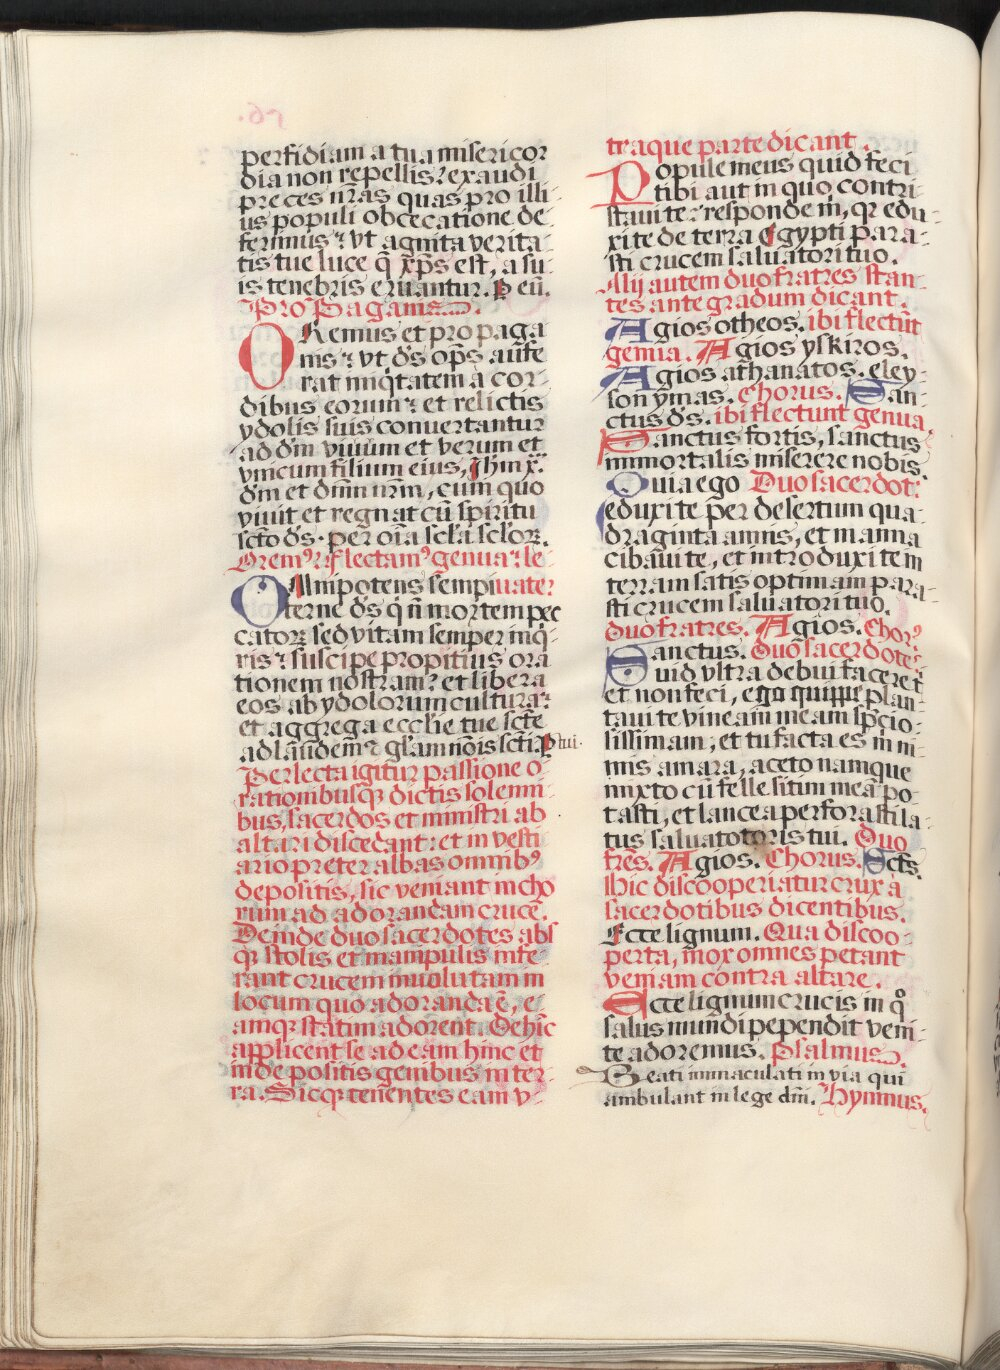 perfidiam a tua misericor
dia non repellis: exaudi
preces nr̃as quas pro illi
us populi obcecatione de
ferimus: vt agnita verita
tis tue luce q̃ xp̃s est, a su
is tenebris eruantur. P eũ.
Pro Paganis.
ORemus et pro paga
nis: vt ds̃ op̃s aufe
rat iniq̃tatem a cor
dibus eorum: et relictis
ydolis suis conuertantur
ad dm̃ viuum et verum et
vnicum filium eius, ihm x̃.
dm̃ et dñm nrm̃, cum quo
viuit et regnat cũ spiritu
sctõ ds̃. per oĩa scl̃a scl̃orꝝ.
Orem⁹. flectam⁹ genua: le
OMnipotens sempi uate:
terne ds̃ q̃ nõ mortem pec
catorꝝ sed vitam semper inq̃
ris: suscipe propitius ora
tionem nostram: et libera
eos ab ydolorum cultura:
et aggrega ecclie tue scte
ad laudem: gl̃am nõis scti tui.
Perlecta igitur passione o
rationibusqꝫ dictis solenni
bus, sacerdos et ministri ab
altari discedant: et in vesti
ario preter albas omnib⁹
depositis, sic veniant in cho
rum ad adorandam crucẽ.
Deinde duo sacerdotes abs
qꝫ stolis et manipulis infe
rant crucem inuolutam in
locum quo adoranda ẽ, e
amqꝫ statim adorent. Dehĩc
applicent se ad eam hinc et
inde positis genibus in ter
ra. Sicqꝫ tenentes eam v
traque parte dicant.
Popule meus quid feci
tibi aut in quo contri
staui te: responde m̃, qꝛ edu
xi te de terra egypti para
sti crucem saluatori tuo.
Alij autem duo fratres stan
tes ante gradum dicant.
Agios otheos. ibi flectũt
genua. Agios yskiros.
Agios athanatos. eley
son ymas. Chorus. San
ctus ds̃. ibi flectunt genua.
Sanctus fortis, sanctus
immortalis miserere nobis.
Quia ego Duo sacerdot:
eduxi te per desertum qua
draginta annis, et manna
cibaui te, et introduxi te in
terram satis optimam para
sti crucem saluatori tuo.
Duo fratres. Agios. Chor⁹
Sanctus. Duo sacerdote:
Quid vltra debui facere t
et non feci, ego quippe plan
taui te vineam meam sp̃cio
sissimam, et tu facta es m̃ ni
mis amara, aceto namque
mixto cũ felle sitim meã po
tasti, et lancea perforasti la
tus saluatotoris tui. Duo
frẽs. Agios. Chorus. Scts̃.
Hic discooperiatur crux a
sacerdotibus dicentibus.
Ecce lignum. Qua discoo
perta, mox omnes petant
veniam contra altare.
Ecce lignum crucis in q°
salus mundi pependit veni
te adoremus. Psalmus.
Beati immaculati in via qui
ambulant in lege dm̃i. Hymnus.